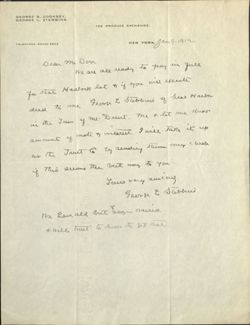 GEORGE R. COOKSEY,
GEORGE L. STEBBINS
108 PRODUCE EXCHANGE,
NEW YORK, Jan 9, 1912
Dear Mr Dorr
We are all ready to pay in full
for that Harbor lot & if you will execute
deed to me George L Stebbins of Seal Harbor
in the Town of Mt. Desert. Me & let me know
amount of note & interest I will take it up
at the Trust Co by sending them my check
if this seems the best way to you
Yours very sincerely
George L Stebbins
& will trust to